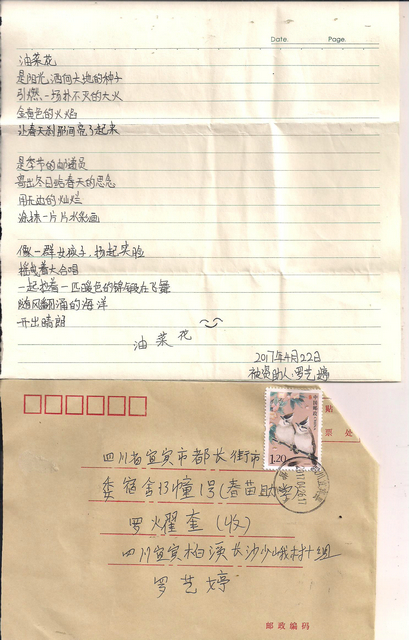 Date. Page.
油菜花
是阳光洒向大地的种子
引燃一场扑不灭的大火
金黄色的火焰
让春天刹那间亮了起来
是季节的邮递员
寄出冬日给春天的思念
用无边的灿烂
涂抹一片片水彩画
像一群女孩子,扬起笑脸
摇曳着大合唱
一起 着一匹暖色的锦缎在飞舞
随风翻涌的海洋
开出晴朗
油菜花
2017年4月22日
被资助人:罗艺婷
贴
票 处
中国邮政
1.20
四川省宜宾市都长街市
委宿舍13幢1号(春苗助学
罗耀奎(收)
四川宜宾柏溪长沙少峨村 组
罗艺婷
邮政编码